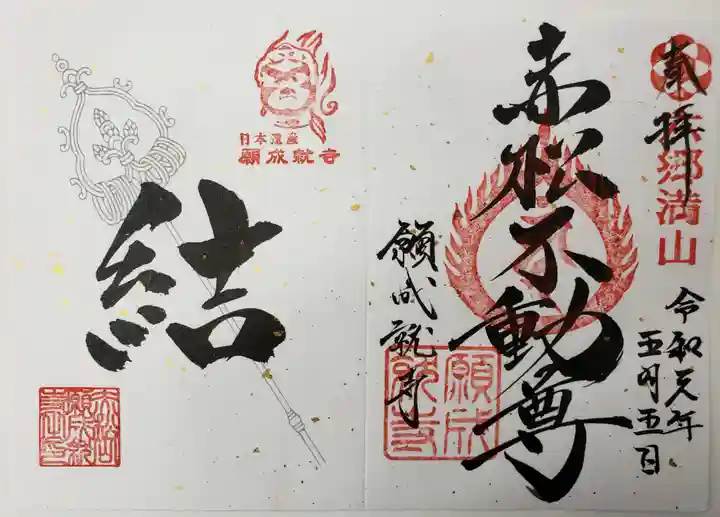 奉拝
郷満山
令和元年
五月五日
赤松不動尊
願成就寺
願成就寺
日本遺産
願成就寺
結